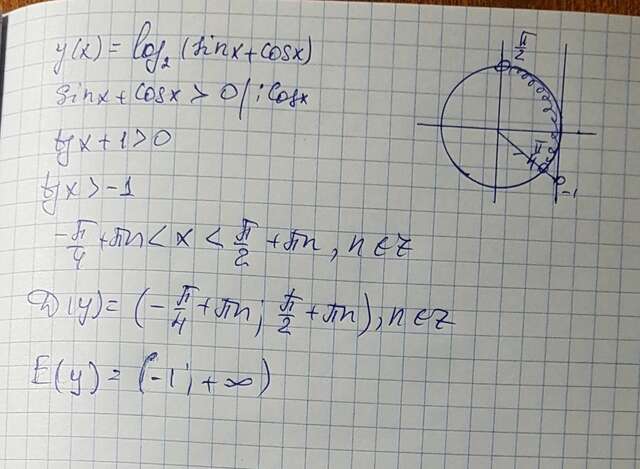 y(x) = log₂ (sinx + cosx)
sinx + cosx > 0 | : cosx
tgx + 1 > 0
tgx > -1
-π/4 + πn < x < π/2 + πn, n ∈ z
D(y) = (-π/4 + πn; π/2 + πn), n ∈ z
E(y) = (-1; +∞)
π/2
-π/4
-1